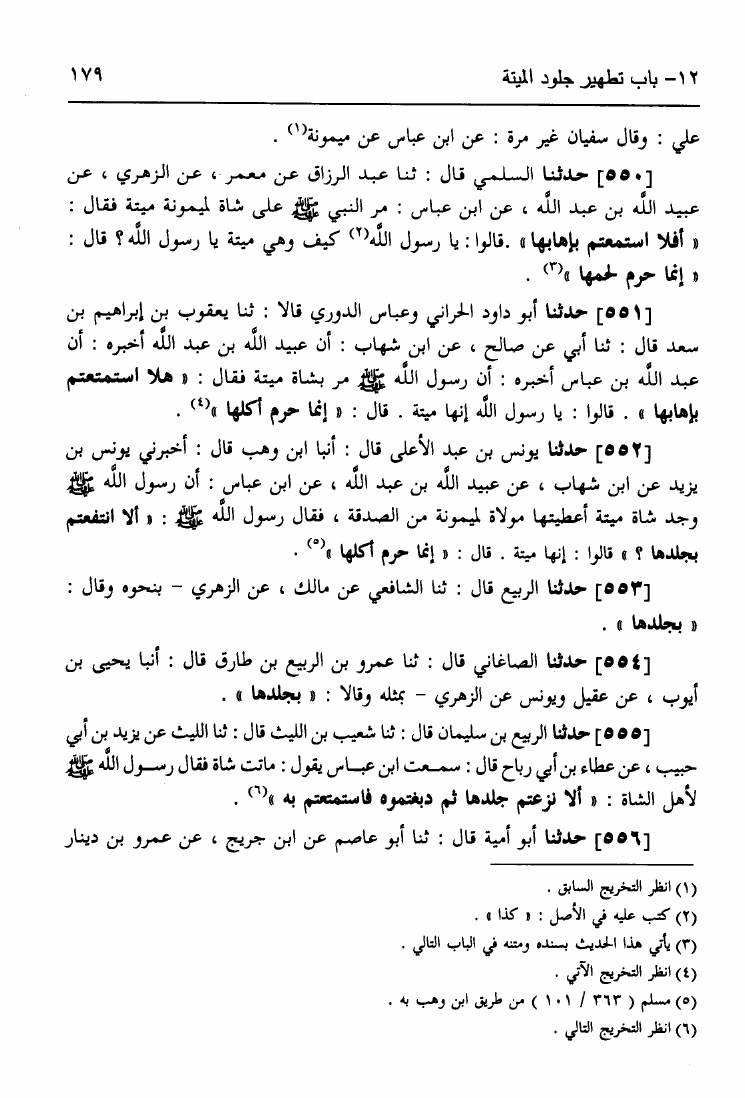 ١٢- باب تطهير جلود الميتة ١٧٩
علي : وقال سفيان غير مرة : عن ابن عباس عن ميمونة(١) .
[٥٥٠] حدثنا السلمي قال : ثنا عبد الرزاق عن معمر ، عن الزهري ، عن
عبيد الله بن عبد الله ، عن ابن عباس : مر النبي ﷺ على شاة لميمونة ميتة فقال :
« أفلا استمعتم بإهابها» .قالوا : يا رسول الله(٢) كيف وهي ميتة يا رسول الله؟ قال :
« إنما حرم لحمها »(٣) .
[٥٥١] حدثنا أبو داود الحراني وعباس الدوري قالا : ثنا يعقوب بن إبراهيم بن
سعد قال : ثنا أبي عن صالح ، عن ابن شهاب : أن عبيد الله بن عبد الله أخبره : أن
عبد الله بن عباس أخبره : أن رسول الله ﷺ مر بشاة ميتة فقال : « هلا استمتعتم
بإهابها » . قالوا : يا رسول الله إنها ميتة . قال : « إنما حرم أكلها »(٤) .
[٥٥٢] حدثنا يونس بن عبد الأعلى قال : أنبا ابن وهب قال : أخبرني يونس بن
يزيد عن ابن شهاب ، عن عبيد الله بن عبد الله ، عن ابن عباس : أن رسول الله ﷺ
وجد شاة ميتة أعطيتها مولاة لميمونة من الصدقة ، فقال رسول الله ﷺ : « ألا انتفعتم
بجلدها ؟ » قالوا : إنها ميتة . قال : « إنما حرم أكلها »(٥) .
[٥٥٣] حدثنا الربيع قال : ثنا الشافعي عن مالك ، عن الزهري – بنحوه وقال :
« بجلدها » .
[٥٥٤] حدثنا الصاغاني قال : ثنا عمرو بن الربيع بن طارق قال : أنبا يحيى بن
أيوب ، عن عقيل ويونس عن الزهري – بمثله وقالا : « بجلدها » .
[٥٥٥] حدثنا الربيع بن سليمان قال : ثنا شعيب بن الليث قال : ثنا الليث عن يزيد بن أبي
حبيب ، عن عطاء بن أبي رباح قال : سمعت ابن عباس يقول : ماتت شاة فقال رسول الله ﷺ
لأهل الشاة : « ألا نزعتم جلدها ثم دبغتموه فاستمتعتم به »(٦) .
[٥٥٦] حدثنا أبو أمية قال : ثنا أبو عاصم عن ابن جريج ، عن عمرو بن دينار
(١) انظر التخريج السابق .
(٢) كتب عليه في الأصل : « كذا » .
(٣) يأتي هذا الحديث بسنده ومتنه في الباب التالي .
(٤) انظر التخريج الآتي .
(٥) مسلم ( ٣٦٣ / ١٠١ ) من طريق ابن وهب به .
(٦) انظر التخريج التالي .